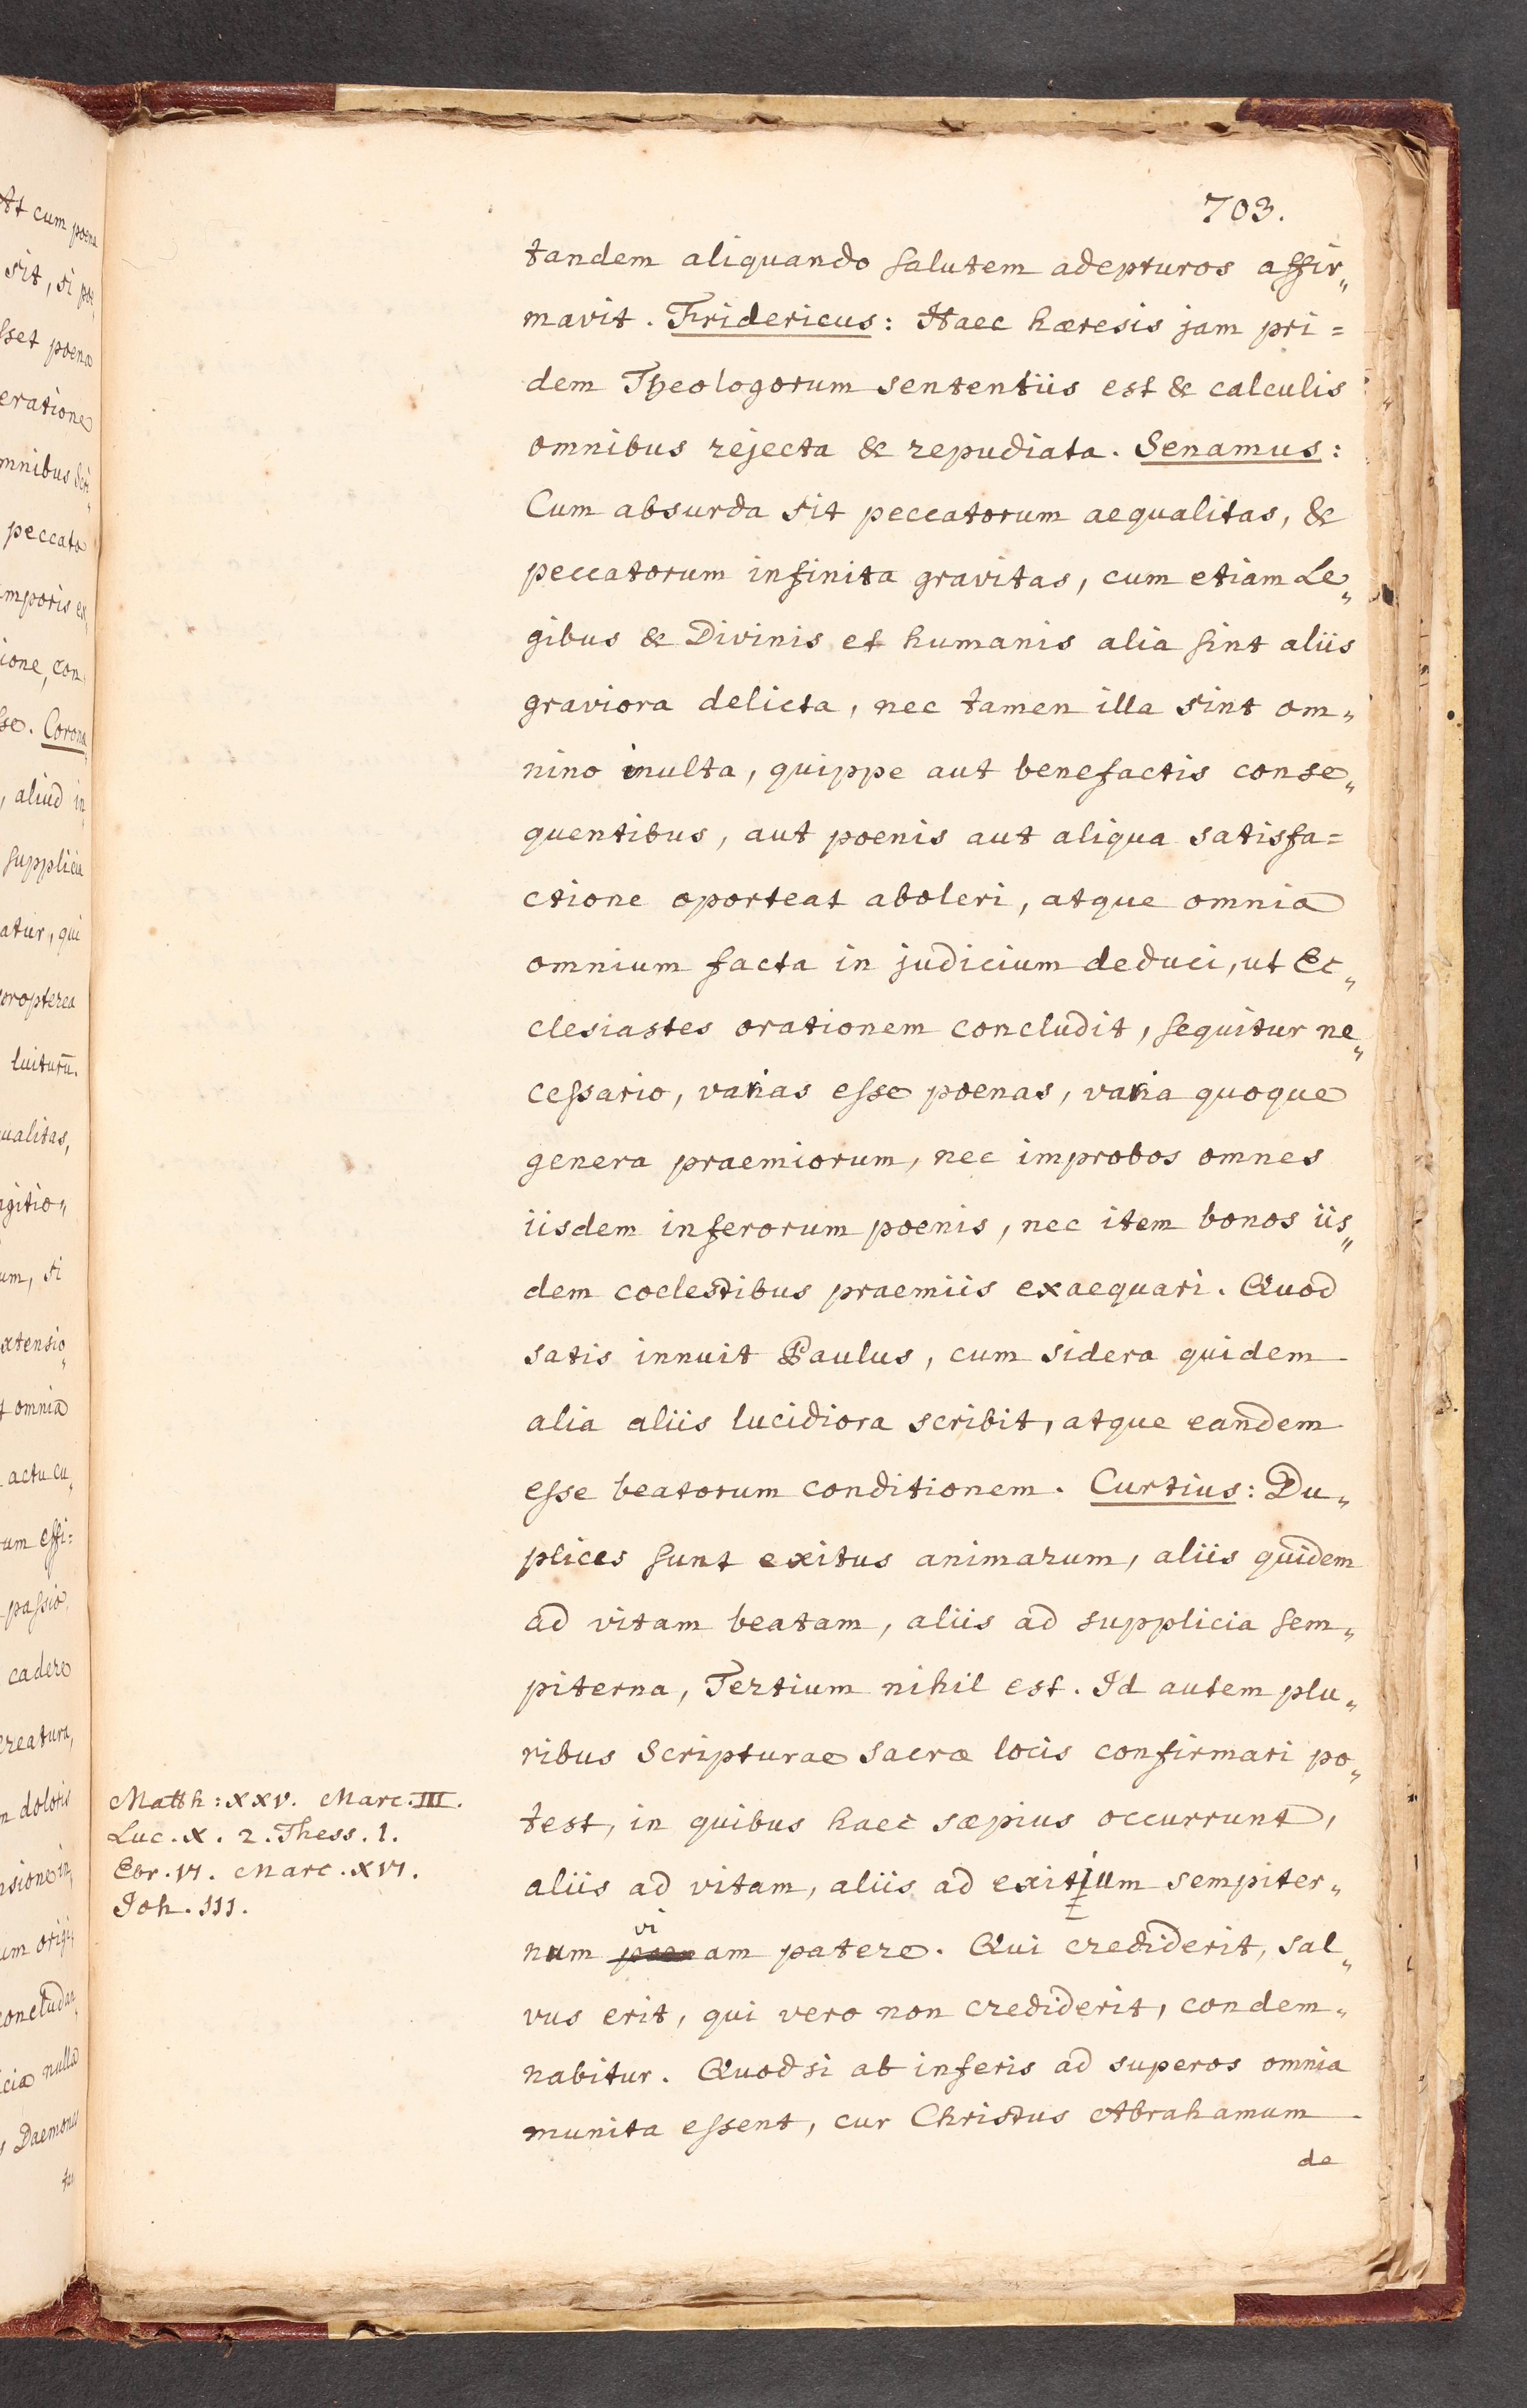 703.
tandem aliquando salutem adepturos affir„
mavit. Fridericus: Haec hæresis jam pri=
dem Theologorum sententiis est & calculis
omnibus rejecta & repudiata. Senamus:
Cum absurda sit peccatorum aequalitas, &
peccatorum infinita gravitas, cum etiam Le„
gibus & Divinis et humanis alia sint aliis
graviora delicta, nec tamen illa sint om„
nino inulta, quippe aut benefactis conse„
quentibus, aut poenis aut aliqua satisfa=
ctione oporteat aboleri, atque omnia
omnium facta in judicium deduci, ut Ec„
clesiastes orationem concludit, sequitur ne„
cessario, varias esse poenas, varia quoque
genera praemiorum, nec improbos omnes
iisdem inferorum poenis, nec item bonos iis„
dem coelestibus praemiis exaequari. Quod
satis innuit Paulus, cum sidera quidem
alia aliis lucidiora scribit, atque eandem
esse beatorum conditionem. Curtius: Du„
plices sunt exitus animarum, aliis quidem
ad vitam beatam, aliis ad supplicia sem„
piterna, Tertium nihil est. Id autem plu„
ribus Scripturae sacræ locis confirmari po„
test, in quibus haec sæpius occurrunt,
aliis ad vitam, aliis ad exitium sempiter„
num viam patere. Qui crediderit, sal„
vus erit, qui vero non crediderit, condem„
nabitur. Quodsi ab inferis ad superos omnia
munita essent, cur Christus Abrahamum
de
Matth: XXV. Marc. III.
Luc. X. 2. Thess. 1.
Ebr. VI. Marc. XVI.
Joh. III.
At cum poena
sit, si
sset poena
eratione
mnibus
peccato
mporis ex
ione, con
se. Corona
, aliud in
supplicia
atur, qui
propterea
luiturū.
ualitas,
agitio„
um, si
xtensio„
omnia
actu cu„
um effi:
passio
cadere
creatura,
doloris
nsione in
um origi
concludan
cia nulla
Daemones